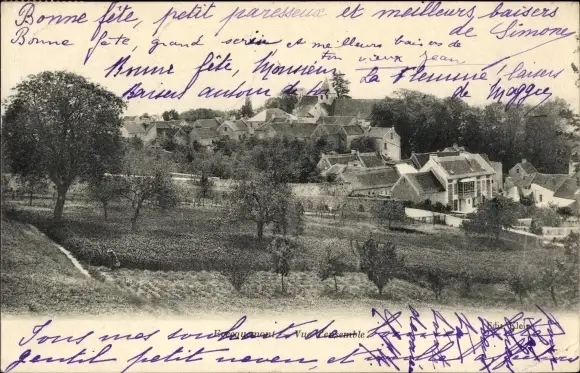 Bonne fête, petit paresseux et meilleurs baisers
de Simone
Bonne fête, grand serin et meilleurs baisers de
ton vieux Jean
Bonne fête, Monsieur La Flemme, baisers
Baisers autour de toi
de Maggy
Ecquemont - Vue d'ensemble
Edit. Klein
Tous mes souhaits
gentil petit neveu, et mille